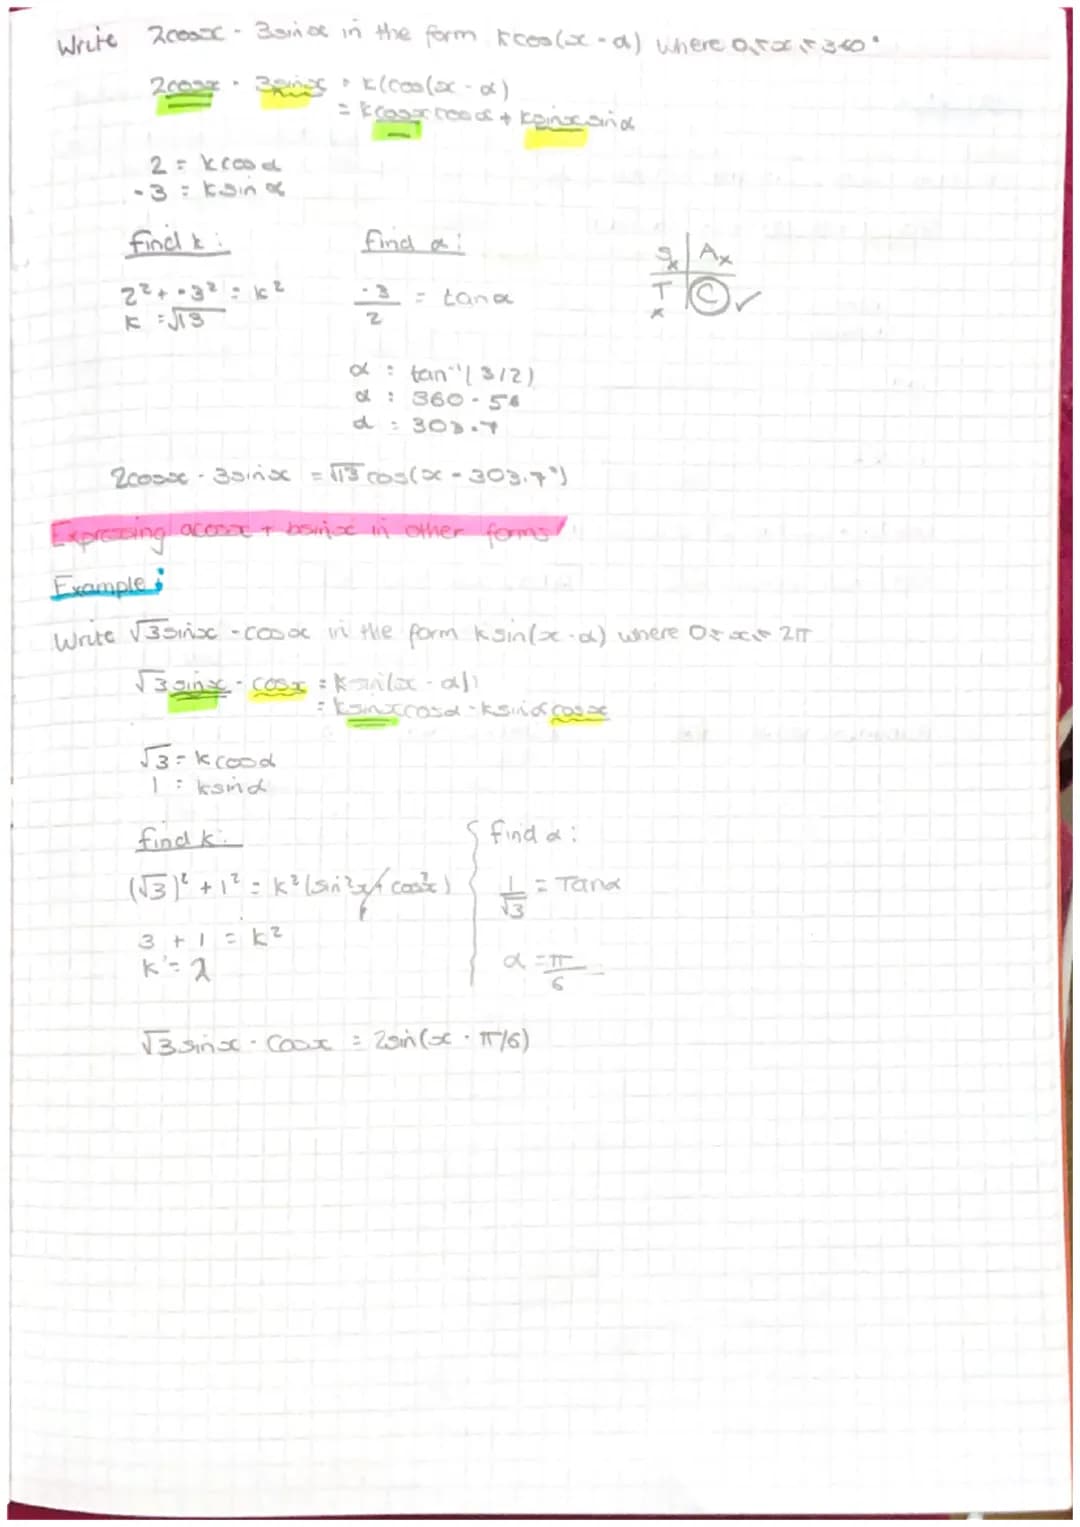 Write 2cosx - 3sinx in the form kcos(x - α) where 0 ≤ x ≤ 360°
2cosx - 3sinx = k(cos(x - α)
= kcosxcosα + ksinxsinα
2 = kcosα
-3 = ksinα
find k: find α:
S x | A x
T x | C ✓
2² + -3² = k² -3/2 = tanα
k = √13
α = tan⁻¹(3/2)
α = 360 - 56
α = 303.7
2cosx - 3sinx = √13 cos(x - 303.7°)
Expressing acosx + bsinx in other forms
Example:
Write √3sinx - cosx in the form ksin(x - α) where 0 ≤ x ≤ 2π
√3sinx - cosx = ksin(x - α)
= ksinxcosα - ksinαcosx
√3 = kcosα
1 = ksinα
find k: find α:
(√3)² + 1² = k²(sin²x + cos²x) 1/√3 = Tanα
3 + 1 = k²
k = 2 α = π/6
√3sinx - cosx = 2sin(x - π/6)